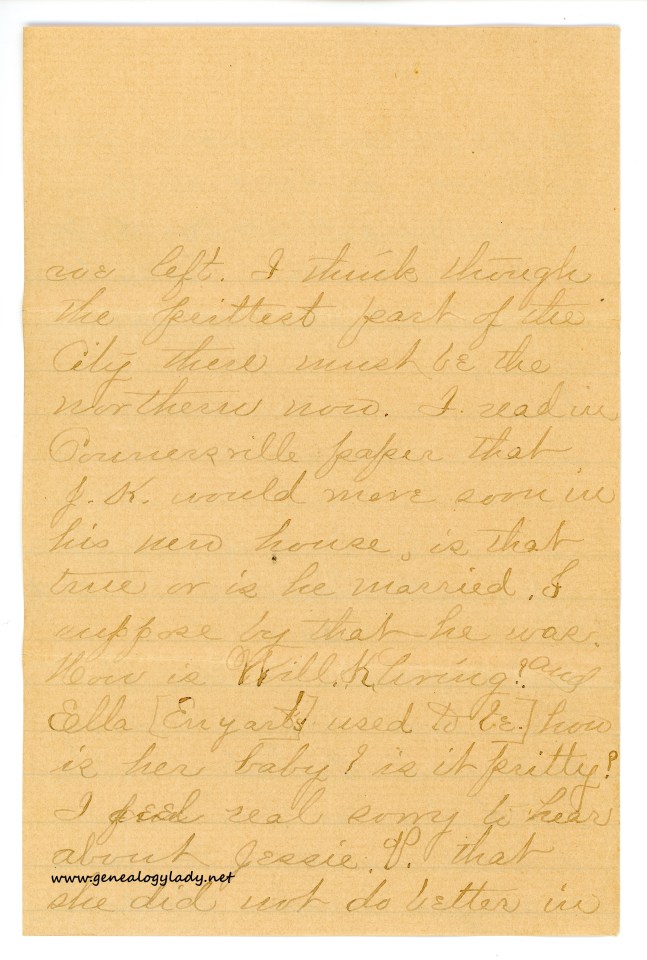 we left. I think though
the prittest part of the
City there must be the
northern now. I read in
Connersville paper that
J. K. would move soon in
his new house, is that
true or is he married, I
suppose by that he was.
How is Will. K living? and
Ella [Enyart used to be.] how
is her baby? is it pritty?
I feel real sorry to hear
about Jessie. P. that
www.genealogylady.net
she did not do better in